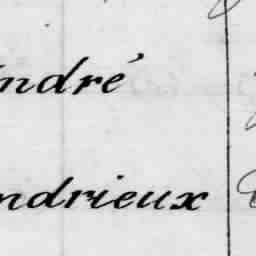 ndré
ndrieux